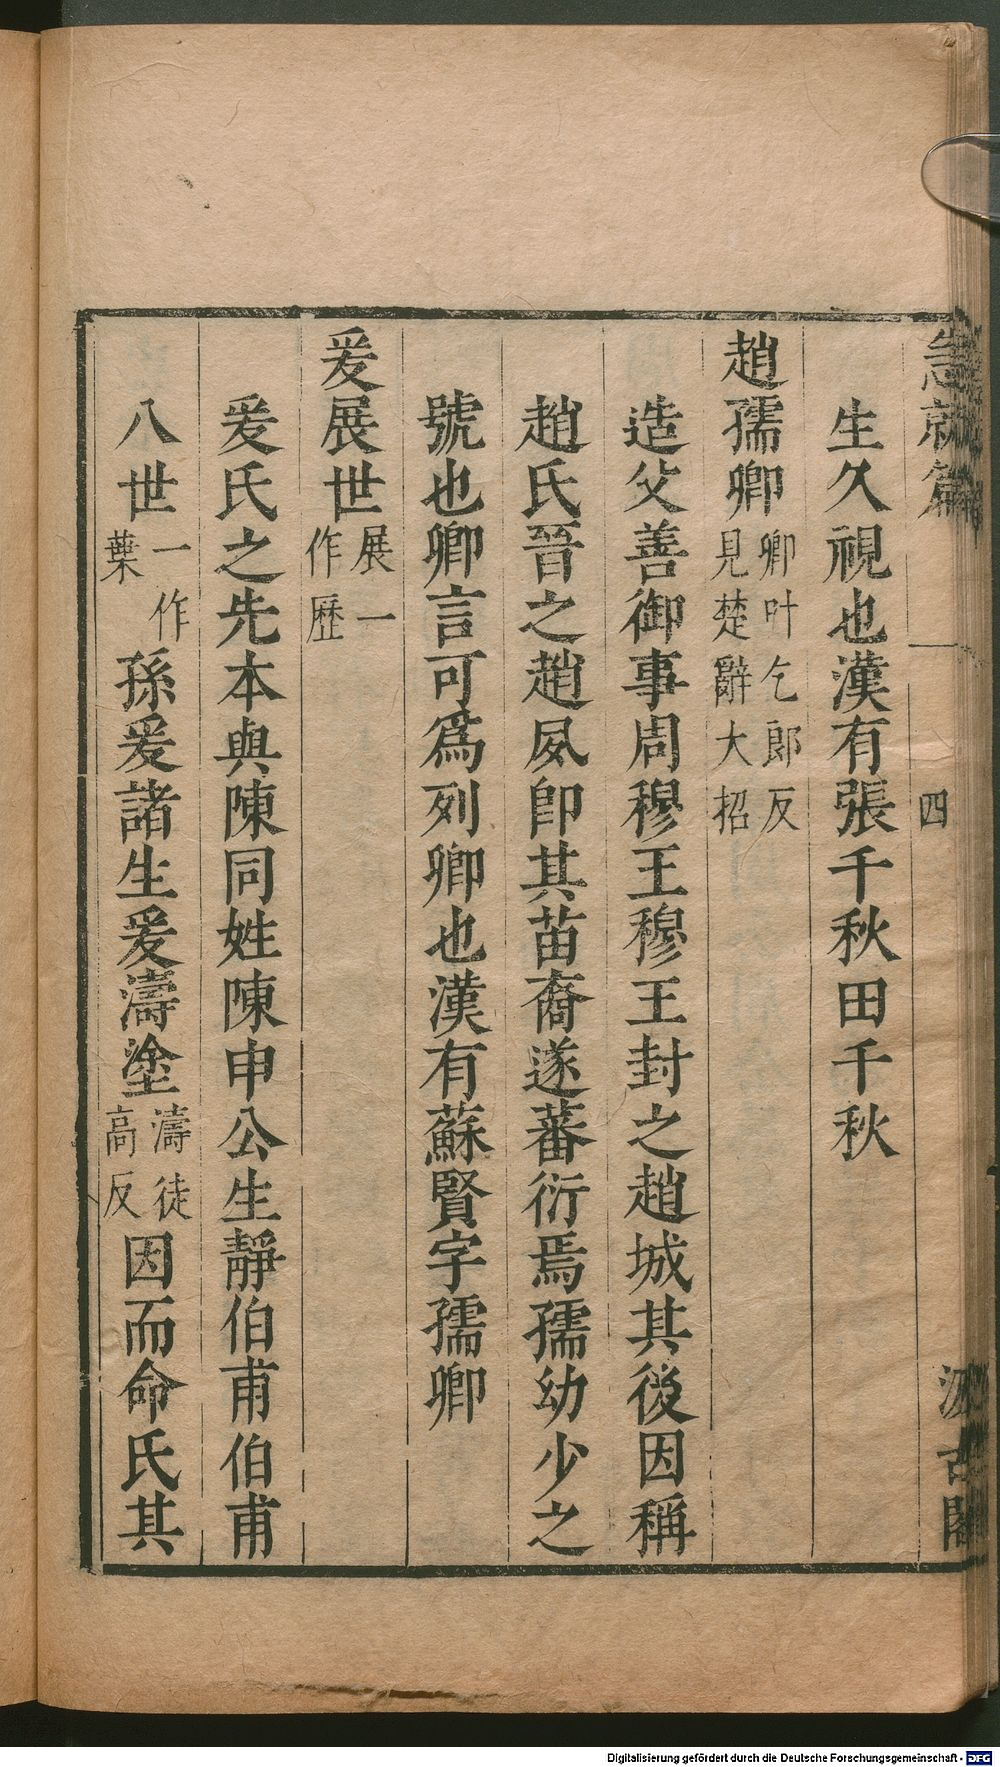 急就篇 四 汲古閣
生久視也漢有張千秋田千秋
趙孺卿卿叶乞郎反見楚辭大招
造父善御事周穆王穆王封之趙城其後因稱
趙氏晉之趙夙卽其苗裔遂蕃衍焉孺幼少之
號也卿言可爲列卿也漢有蘇賢字孺卿
爰展世展一作歷
爰氏之先本與陳同姓陳申公生靜伯甫伯甫
八世一作葉孫爰諸生爰濤塗濤徒高反因而命氏其
Digitalisierung gefördert durch die Deutsche Forschungsgemeinschaft - DFG